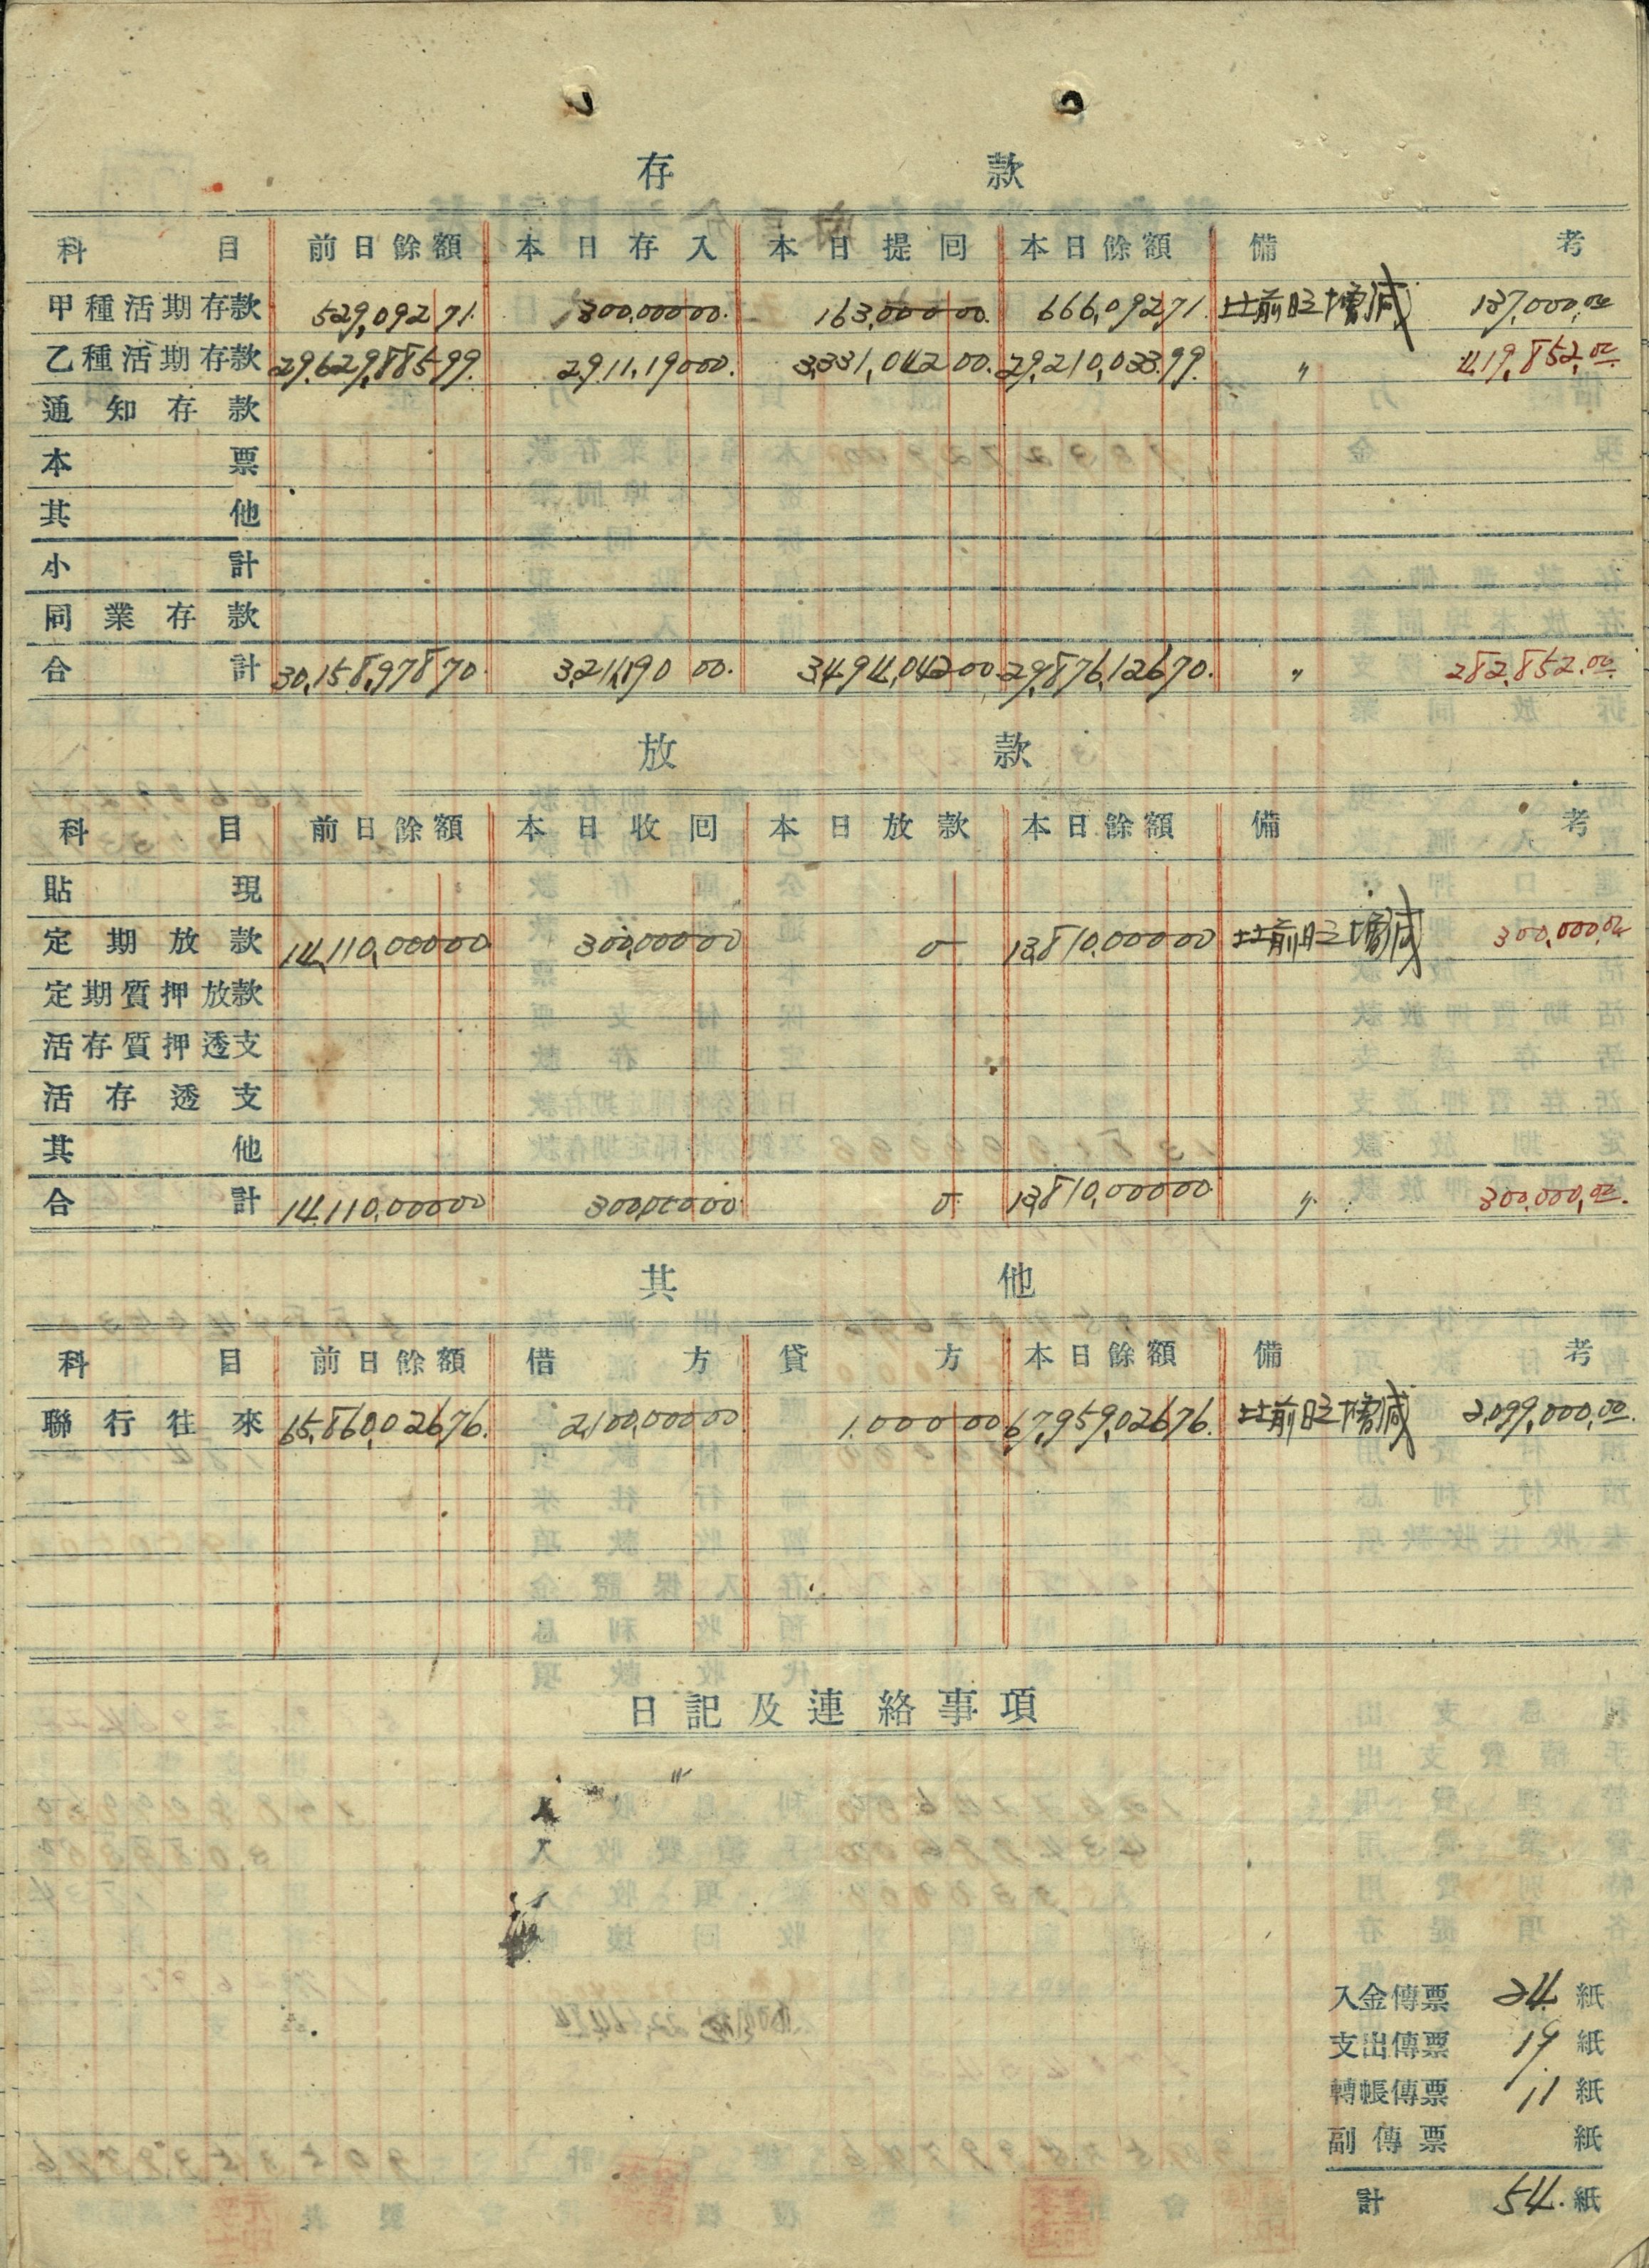 存款
科目 前日餘額 本日存入 本日提囘 本日餘額 備考
甲種活期存款 529,092 71. 300,000 00. 163,000 00. 666,092 71. 比前日增減 137,000.00
乙種活期存款 29,629,885 99. 2,911,190 00. 3,331,042 00. 29,210,033 99. 〃 419,852.00
通知存款
本票
其他
小計
同業存款
合計 30,158,978 70. 3,211,190 00. 3,494,042 00. 29,876,126 70. 〃 282,852.00
放款
科目 前日餘額 本日收囘 本日放款 本日餘額 備考
貼現
定期放款 14,110,000 00 300,000 00 0 13,810,000 00 比前日增減 300,000.00
定期質押放款
活存質押透支
活存透支
其他
合計 14,110,000 00 300,000 00 0 13,810,000 00 〃 300,000.00
其他
科目 前日餘額 借方 貸方 本日餘額 備考
聯行往來 65,860,026 76. 2,100,000 00 1,000 00 67,959,026 76. 比前日增減 2,099,000.00
日記及連絡事項
入金傳票 24 紙
支出傳票 19 紙
轉帳傳票 11 紙
副傳票 紙
計 54. 紙